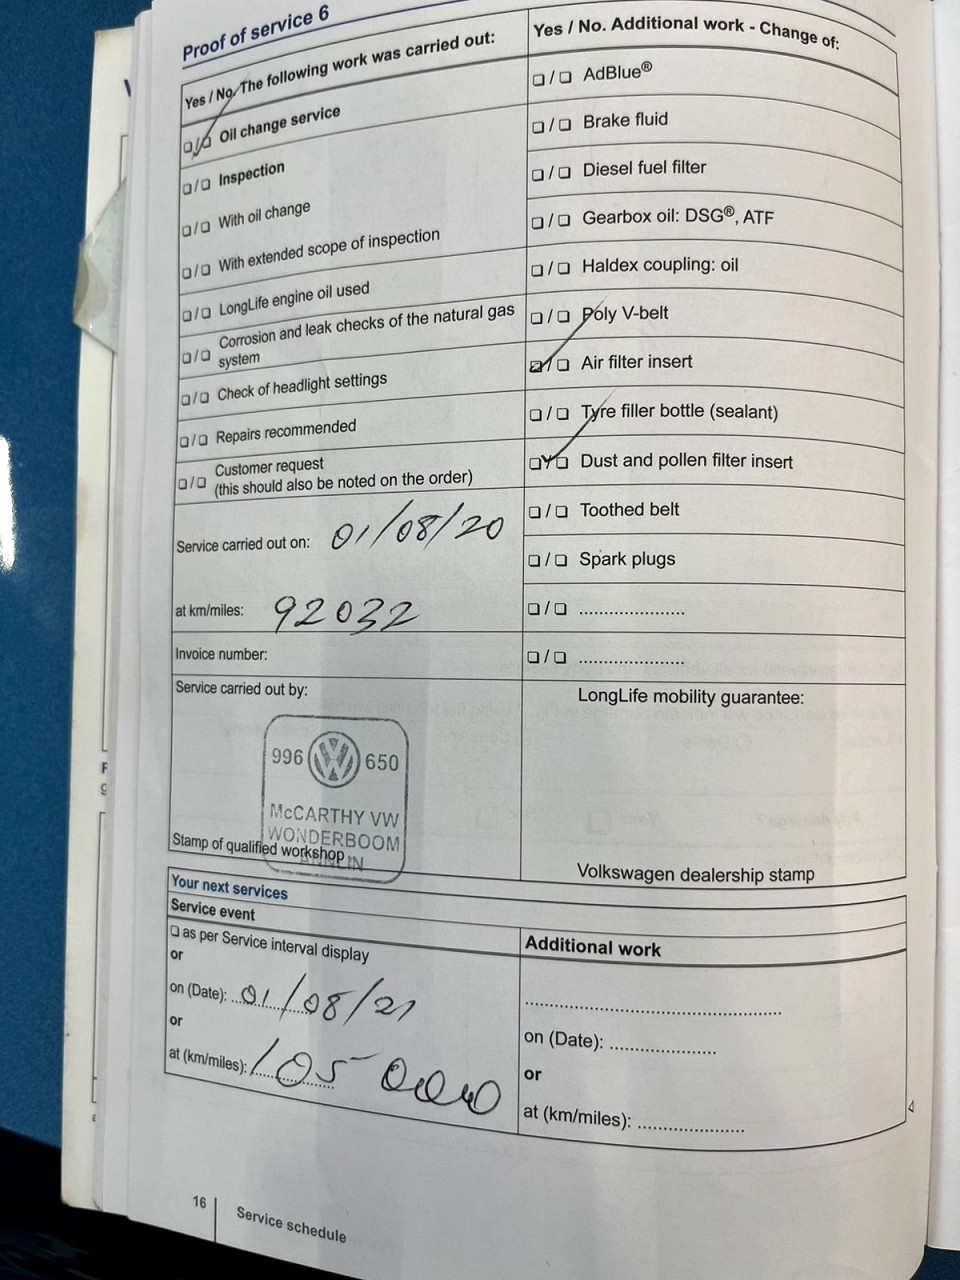 Proof of service 6
Yes / No. The following work was carried out:
❏/❏ Oil change service
❏/❏ Inspection
❏/❏ With oil change
❏/❏ With extended scope of inspection
❏/❏ LongLife engine oil used
❏/❏ Corrosion and leak checks of the natural gas
system
❏/❏ Check of headlight settings
❏/❏ Repairs recommended
❏/❏ Customer request
(this should also be noted on the order)
Service carried out on: 01/08/20
at km/miles: 92032
Invoice number:
Service carried out by:
996 VW 650
McCARTHY VW
WONDERBOOM
Stamp of qualified workshop
Yes / No. Additional work - Change of:
❏/❏ AdBlue®
❏/❏ Brake fluid
❏/❏ Diesel fuel filter
❏/❏ Gearbox oil: DSG®, ATF
❏/❏ Haldex coupling: oil
❏/❏ Poly V-belt
❏/❏ Air filter insert
❏/❏ Tyre filler bottle (sealant)
❏/❏ Dust and pollen filter insert
❏/❏ Toothed belt
❏/❏ Spark plugs
❏/❏ ......................
❏/❏ ......................
LongLife mobility guarantee:
Volkswagen dealership stamp
Your next services
Service event
❏ as per Service interval display
or
on (Date): 01/08/21
or
at (km/miles): 105 000
Additional work
................................................
on (Date): ....................
or
at (km/miles): ....................
16
Service schedule